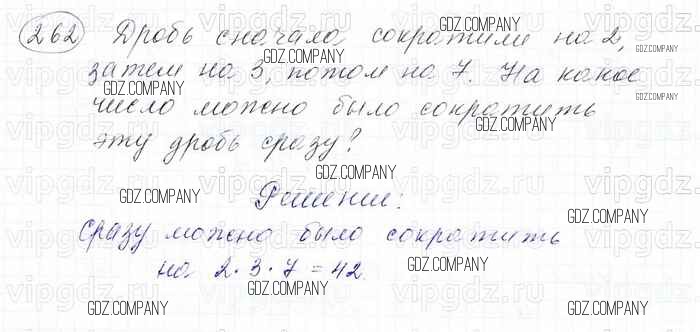 262 Дробь сначала сократили на 2,
затем на 3, потом на 7. На какое
число можно было сократить
эту дробь сразу?
Решение:
Сразу можно было сократить
на 2·3·7=42
GDZ.COMPANY
GDZ.COMPANY
GDZ.COMPANY
GDZ.COMPANY
GDZ.COMPANY
GDZ.COMPANY
GDZ.COMPANY
GDZ.COMPANY
GDZ.COMPANY
GDZ.COMPANY
GDZ.COMPANY
GDZ.COMPANY
GDZ.COMPANY
GDZ.COMPANY